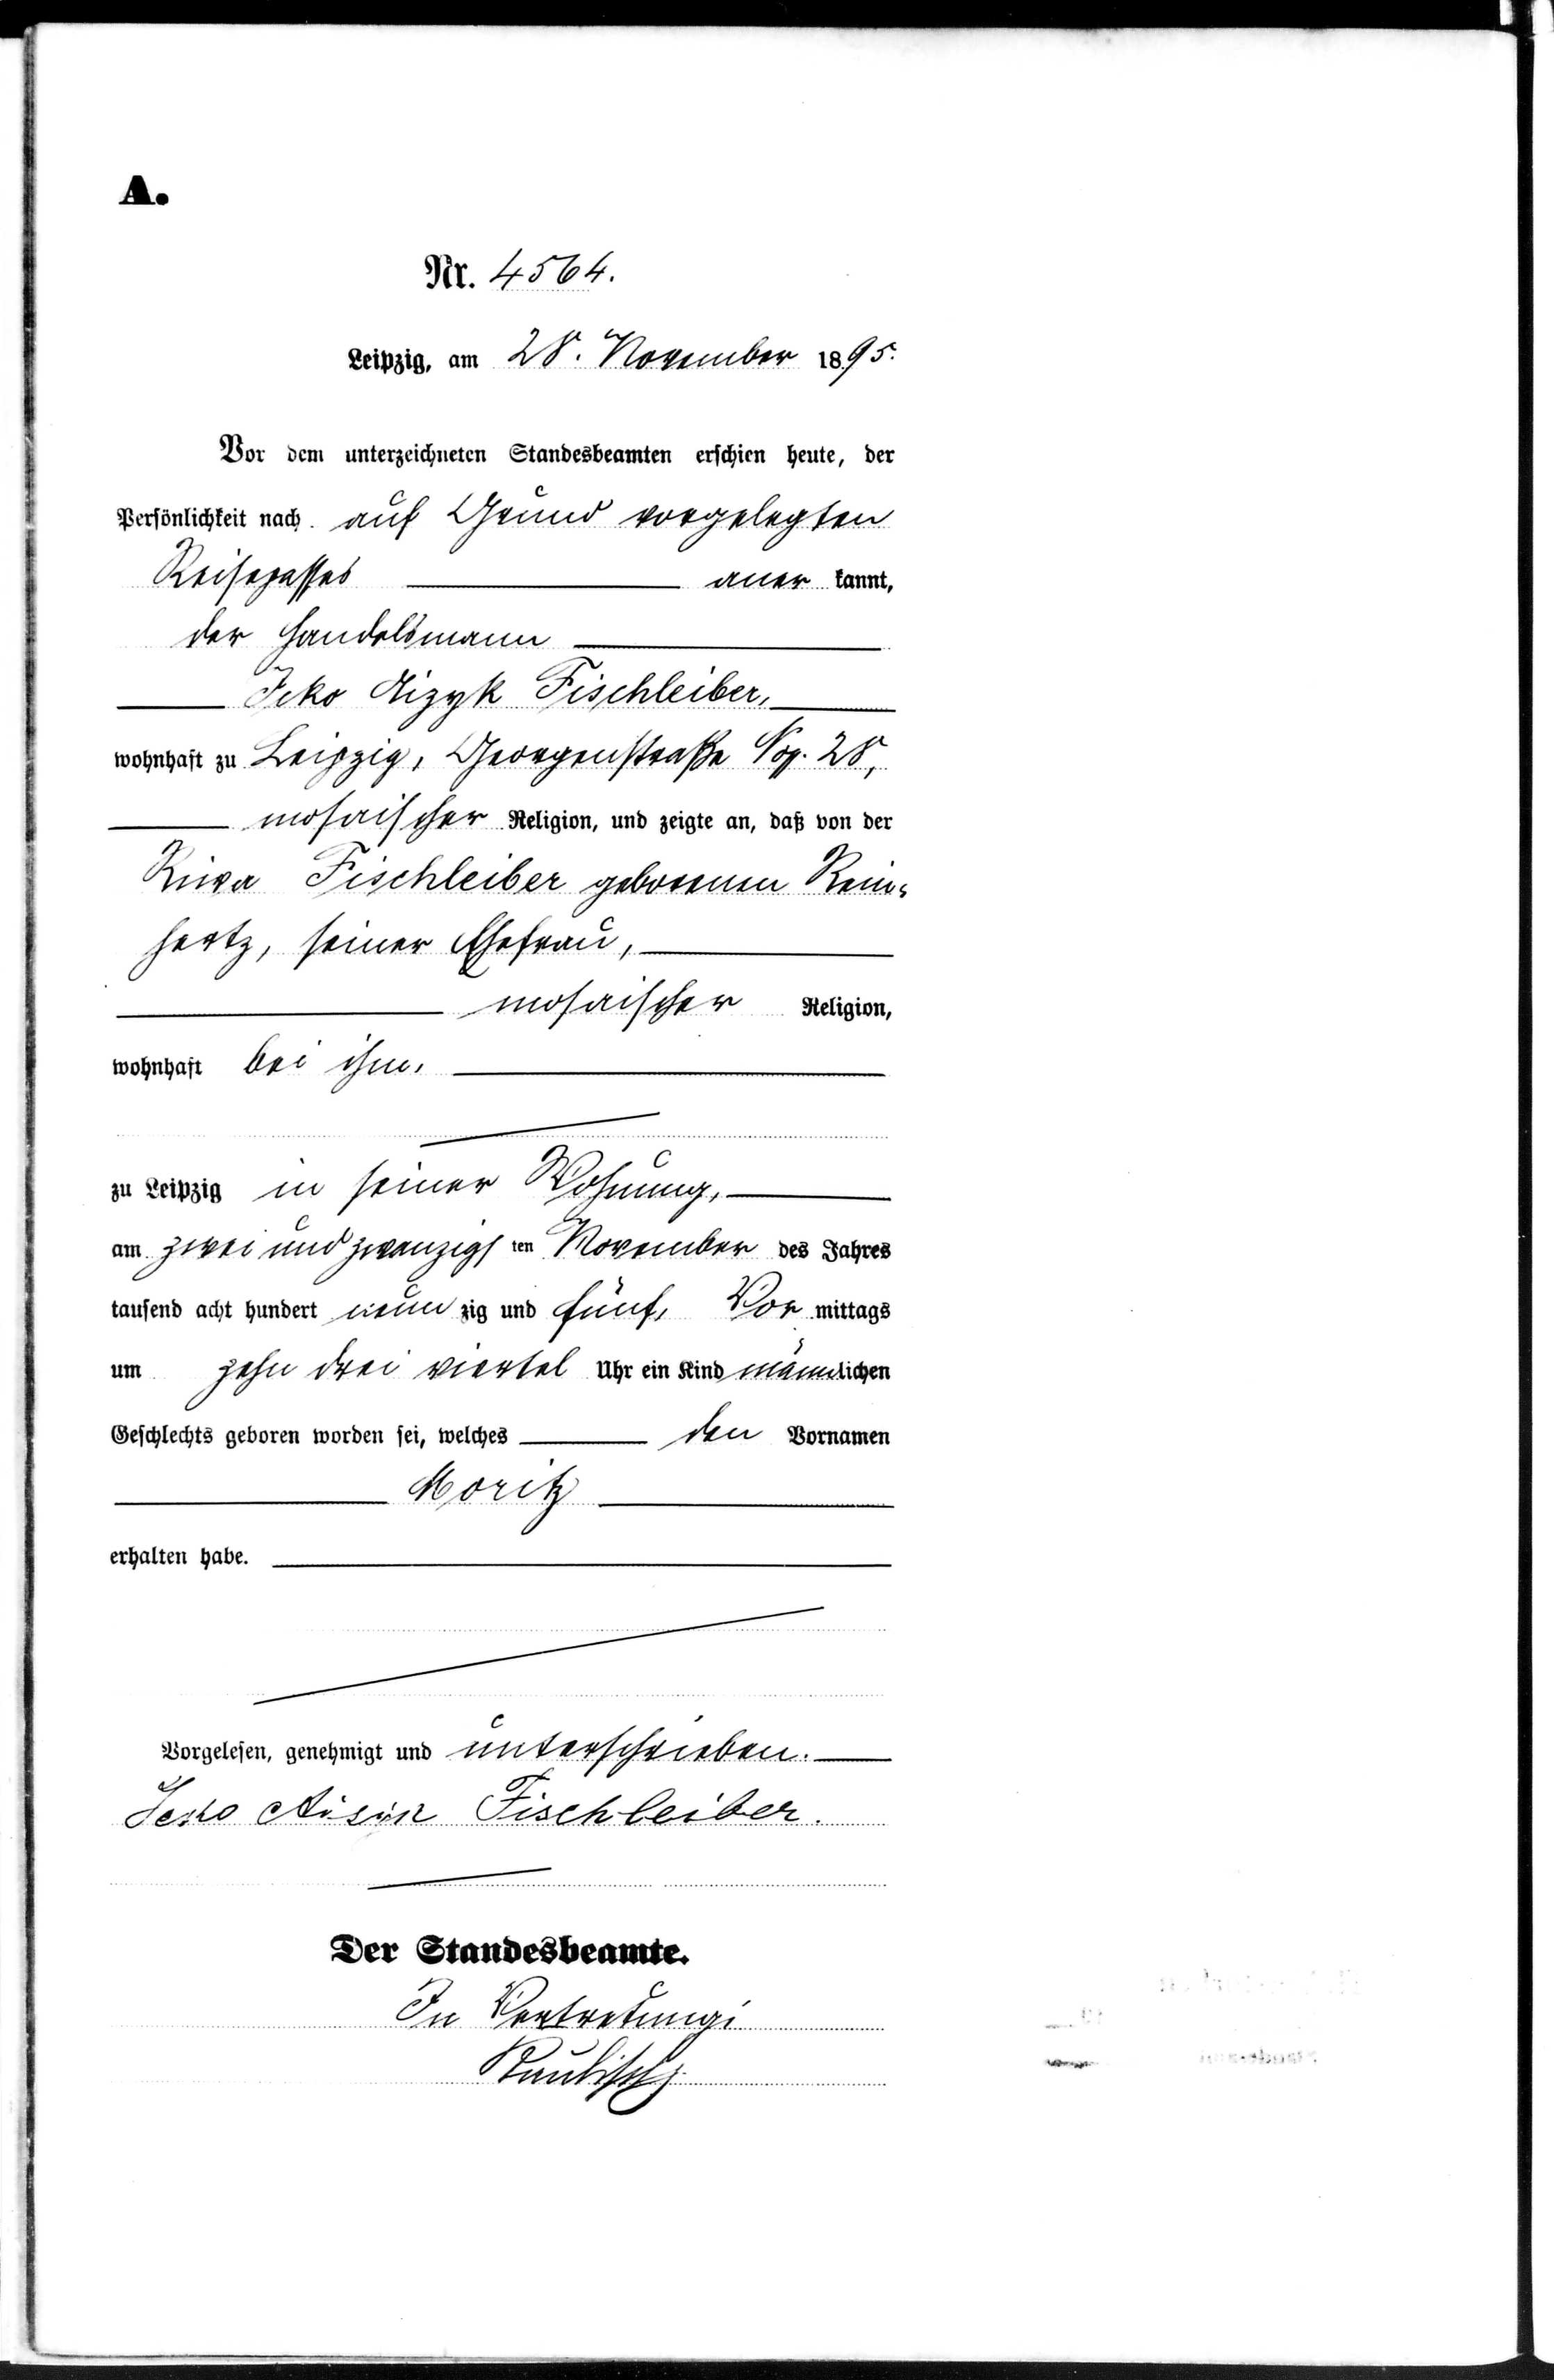 A.
Nr. 4564.
Leipzig, am 28. November 1895.
Vor dem unterzeichneten Standesbeamten erschien heute, der
Persönlichkeit nach auf Grund vorgelegten
Reisepasses aner kannt,
der Handelsmann
Icko Aizyk Fischleiber,
wohnhaft zu Leipzig, Georgenstraße No. 28,
mosaischer Religion, und zeigte an, daß von der
Riwa Fischleiber geborenen Rein-
hertz, seiner Ehefrau,
mosaischer Religion,
wohnhaft bei ihm,
zu Leipzig in seiner Wohnung,
am zwei und zwanzigs ten November des Jahres
tausend acht hundert neun zig und fünf, Vor mittags
um zehn drei viertel Uhr ein Kind männlichen
Geschlechts geboren worden sei, welches den Vornamen
Moritz
erhalten habe.
Vorgelesen, genehmigt und unterschrieben.
Icko Aisik Fischleiber.
Der Standesbeamte.
In Vertretung: